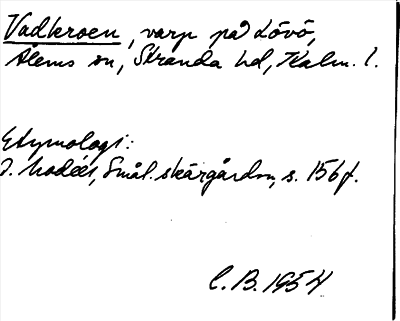 Vadkroen, varp på Lövö,
Ålems sn, Stranda hd, Kalm. l.
Etymologi:
J. Modéer, Smål. skärgårdsn, s. 156 f.
C. B. 1954